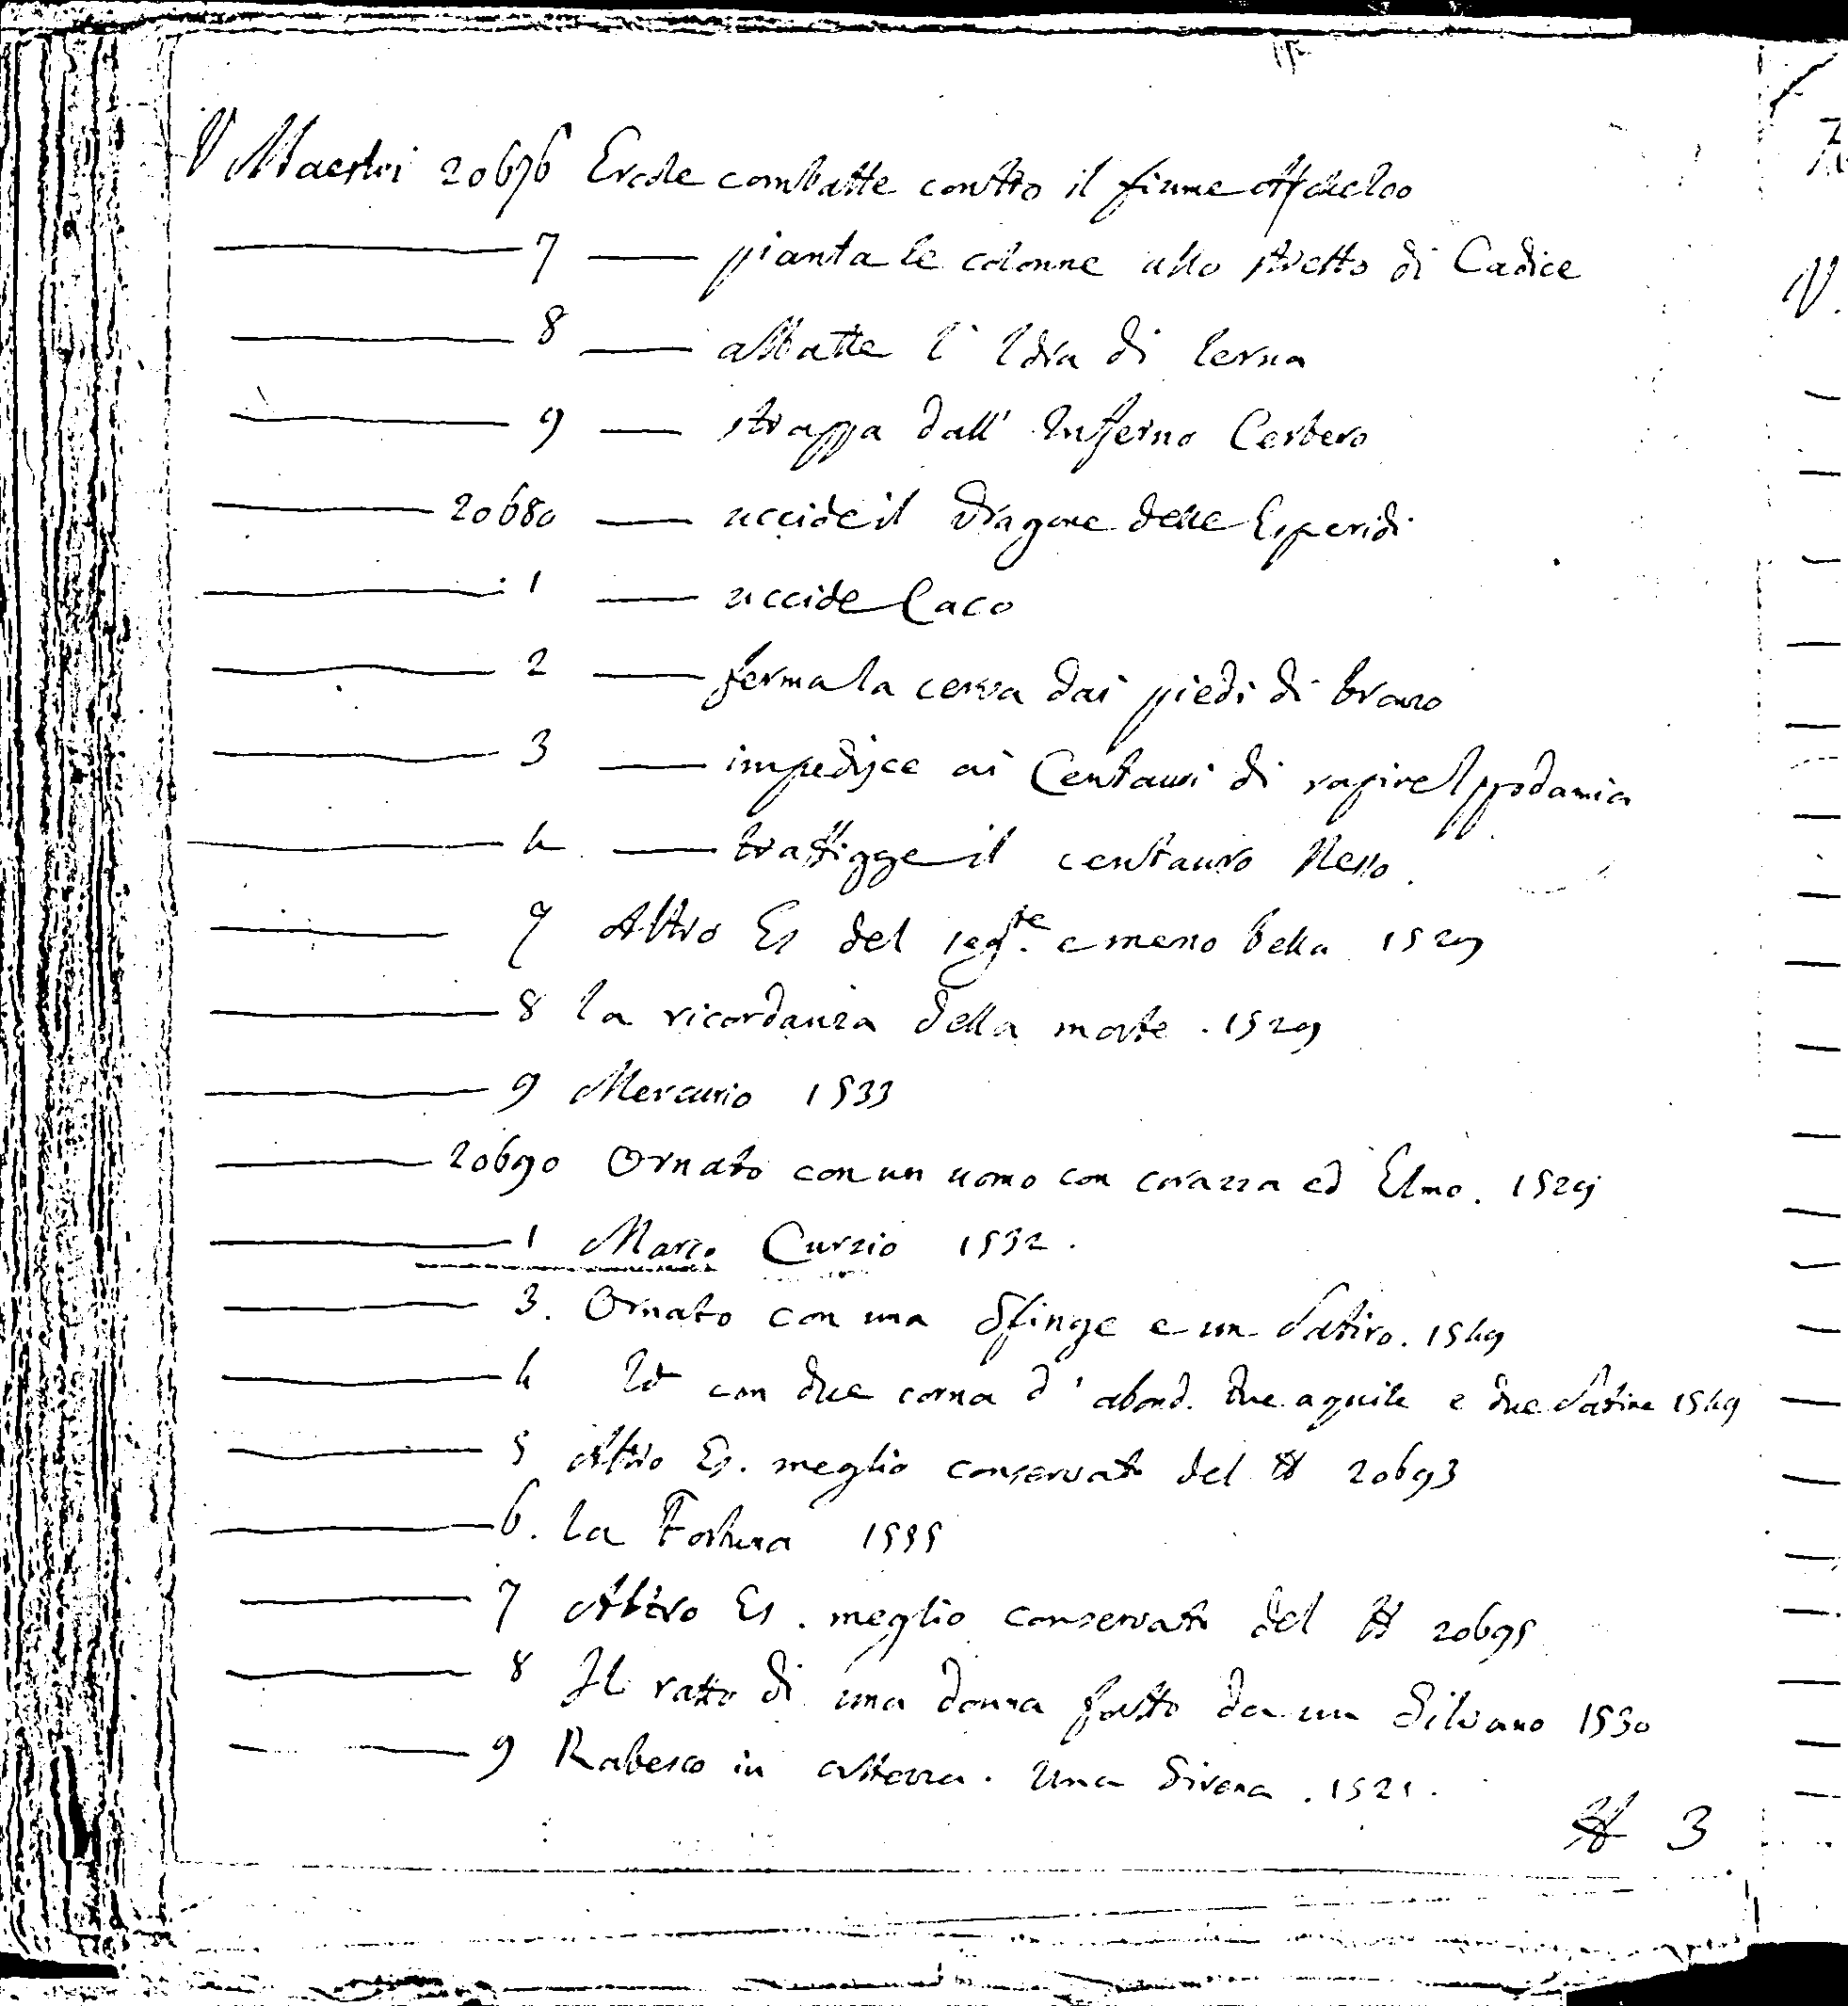 V Maestri 20676 Ercole combatte contro il fiume Acheloo
——— 7 —— pianta le colonne allo stretto di Cadice
——— 8 —— abbatte l' Idra di lerna
——— 9 —— strappa dall' Inferno Cerbero
——— 20680 —— uccide il Dragone delle Esperidi
——— 1 —— uccide Caco
——— 2 —— ferma la cerva dai piedi di bronzo
——— 3 —— impedisce ai Centauri di rapire Ippodamia
——— 4 —— traffigge il centauro Nesso.
——— 7 Altro Es del segte e meno bella 1529
——— 8 la ricordanza della morte. 1529
——— 9 Mercurio 1533
——— 20690 Ornato con un uomo con corazza ed Elmo. 1529
——— 1 Marco Curzio 1532.
——— 3. Ornato con una Sfinge e un Satiro. 1549
——— 4 Id con due corna d' abond. due aquile e due Satire 1549
——— 5 Altro Es. meglio conservato del N 20693
——— 6. la Fortuna 1555
——— 7 Altro Es. meglio conservato del N 20695
——— 8 Il ratto di una donna fatto da un Silvano 1530
——— 9 Rabesco in altezza. Una Sirena. 1521.
N 3